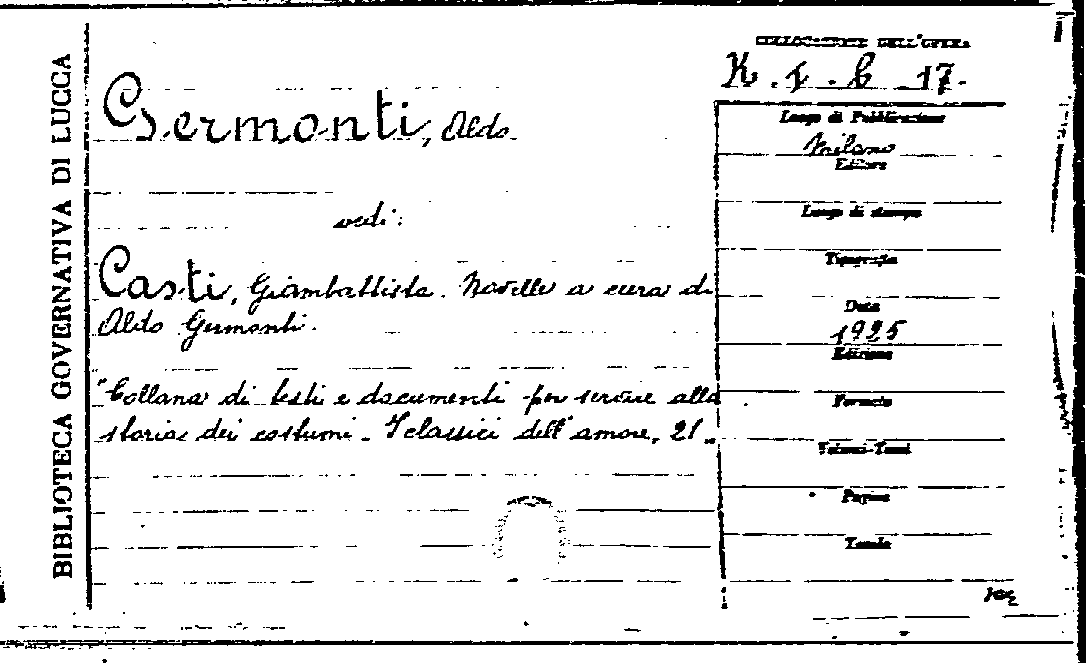 BIBLIOTECA GOVERNATIVA DI LUCCA
COLLOCAZIONE DELL'OPERA
K. 1. C 17.
Germonti, Aldo
vedi:
Casti, Giambattista. Novelle a cura di
Aldo Germonti.
"Collana di testi e documenti per servire alla
storia dei costumi. I classici dell'amore, 21.
Luogo di Pubblicazione
Milano
Editore
Luogo di stampa
Tipografia
Data
1925
Edizione
Formato
Volumi-Tomi
Pagine
Tavole